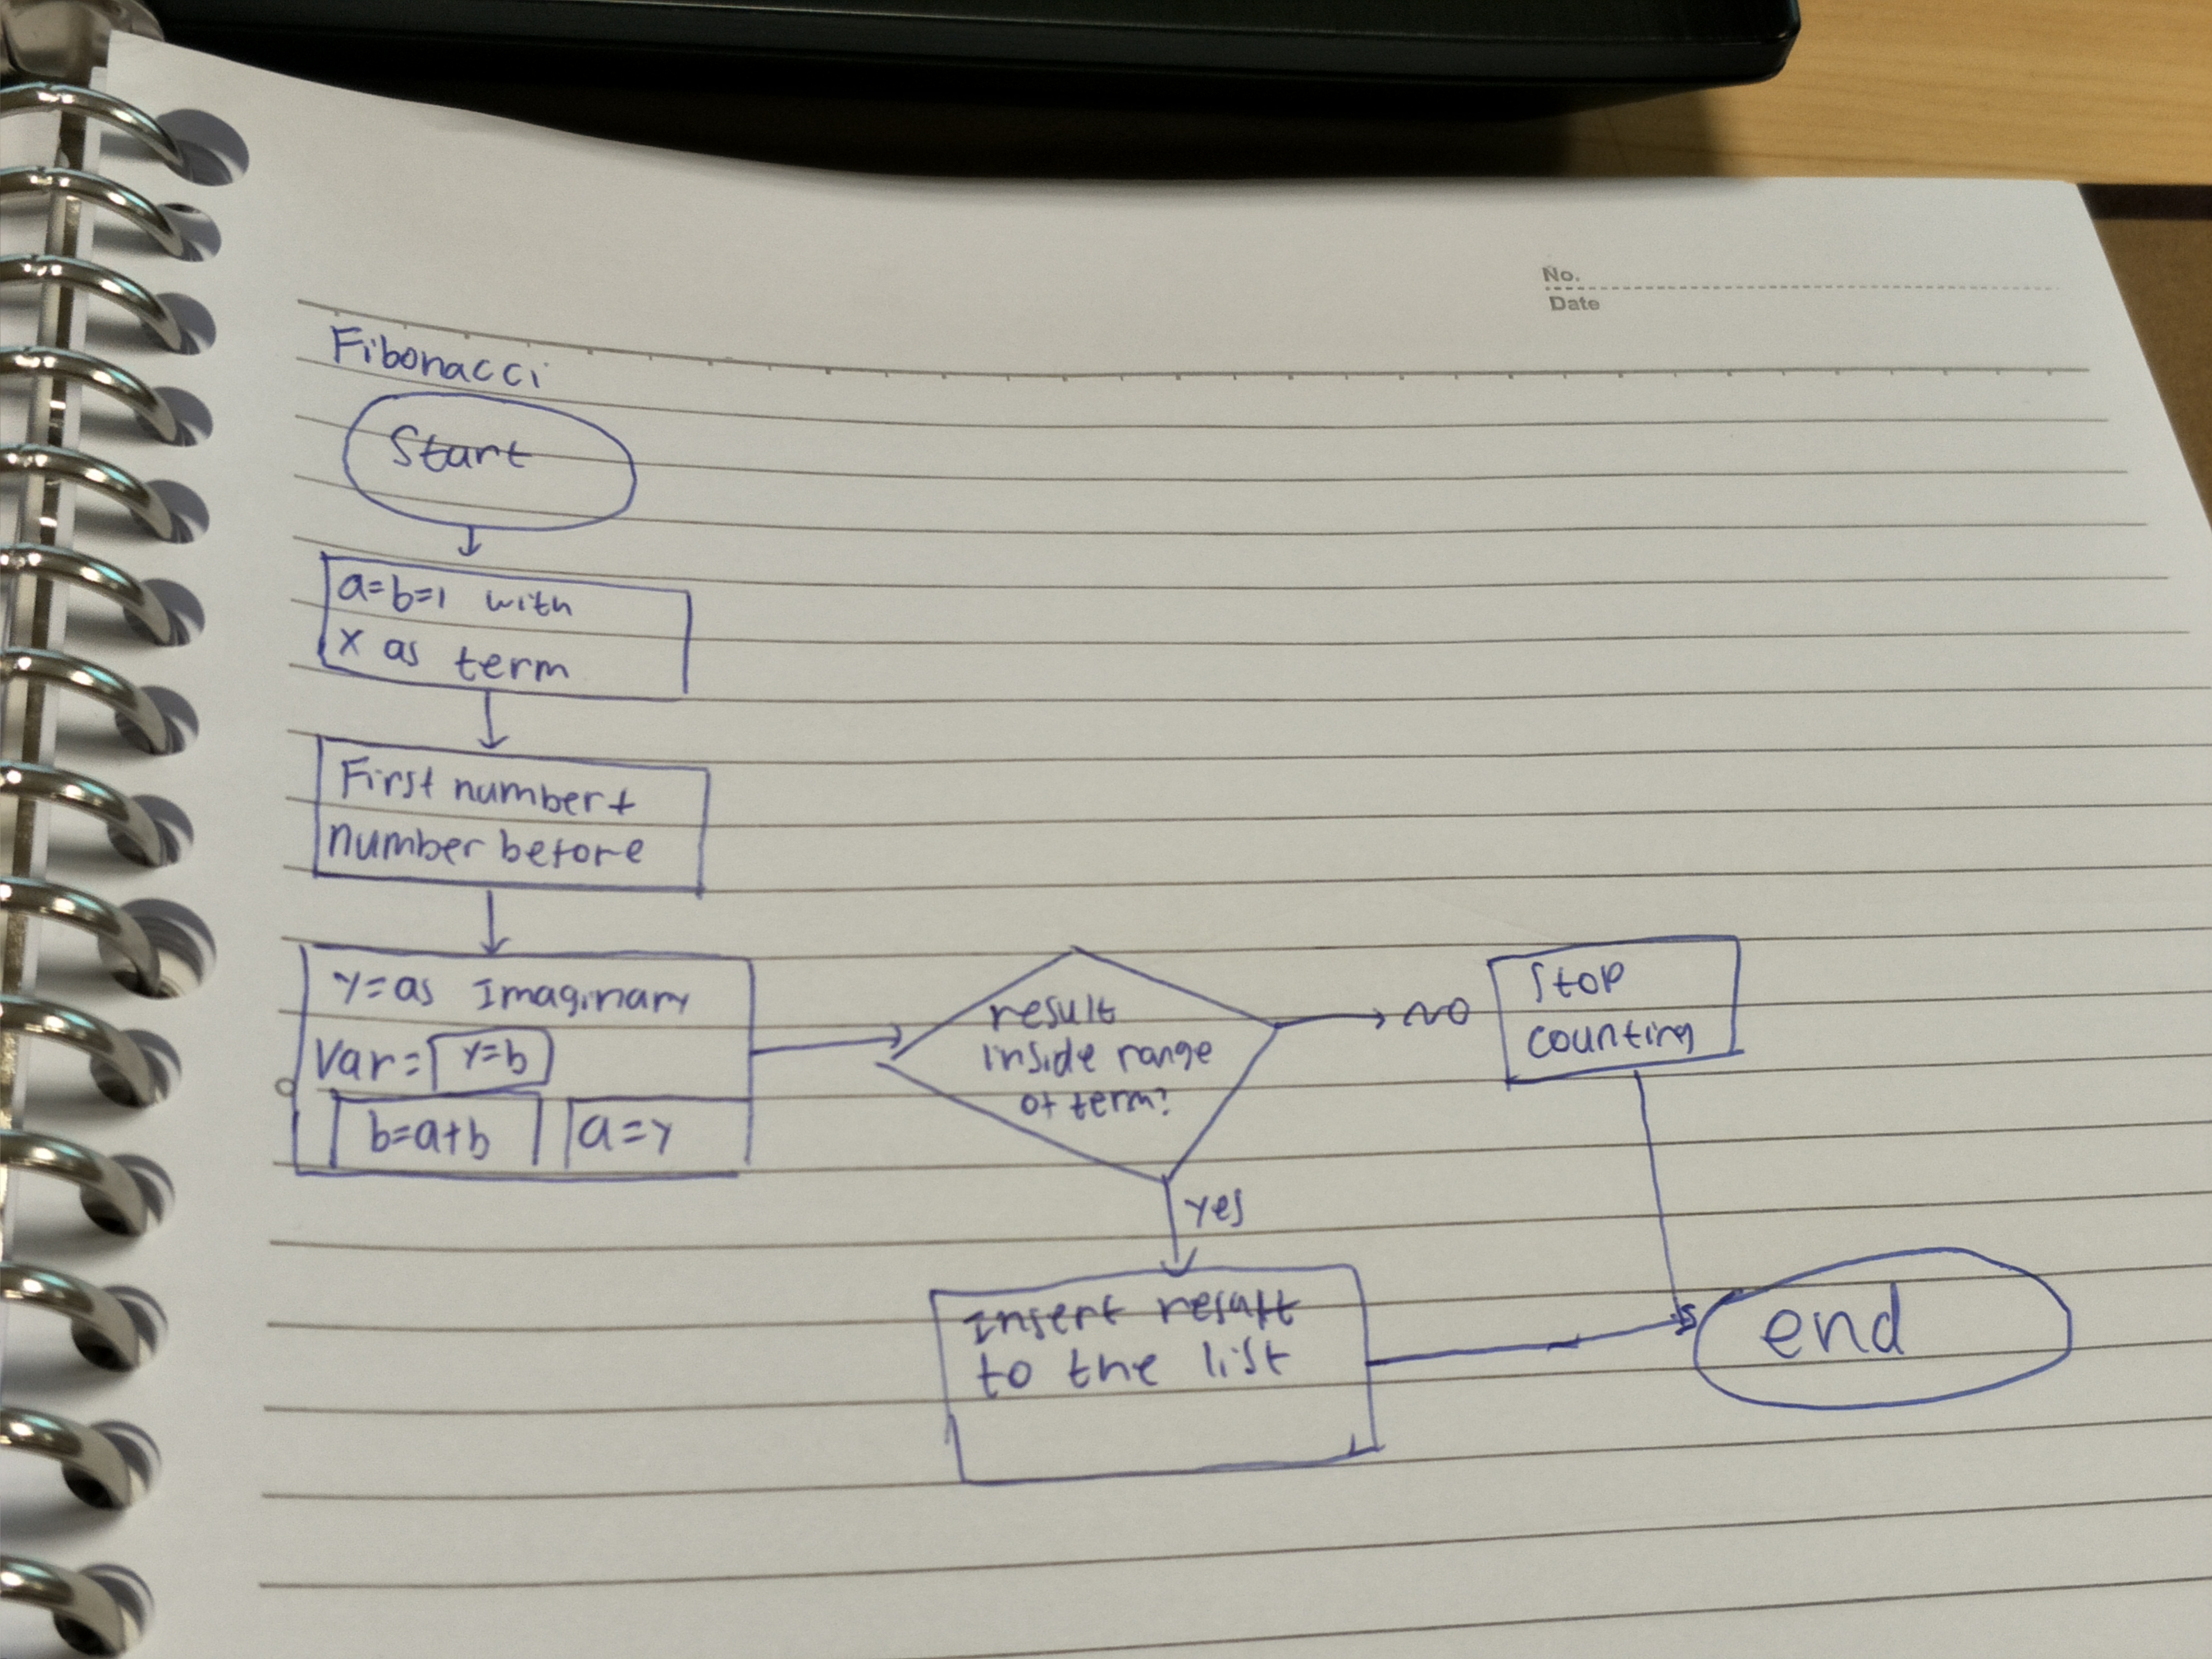 No.
Date
Fibonacci
Start
a=b=1 with
x as term
First number+
number before
y=as Imaginary
Var= y=b
b=a+b a=y
result
inside range
of term?
no
Stop
counting
yes
Insert result
to the list
end